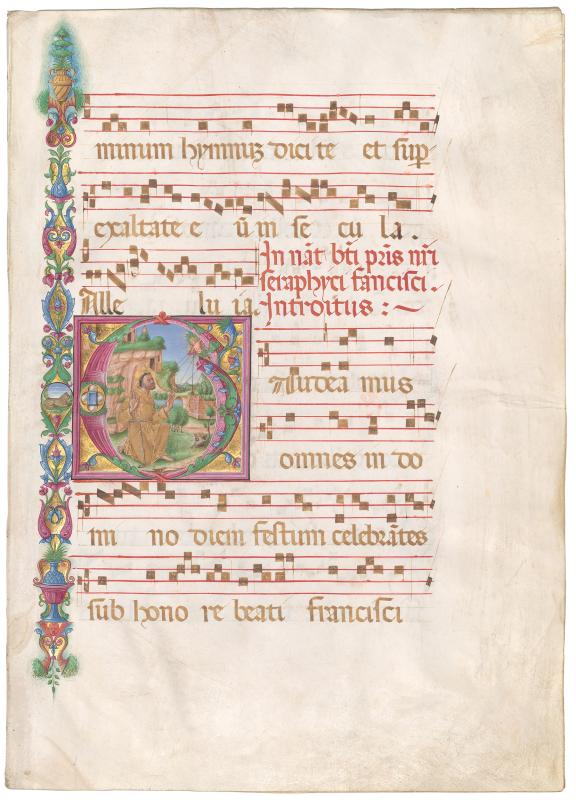 minum hymnuʒ dici te et sup̄
exaltate e ū in se cu la.
In nāt bt̄i pr̄is nr̄i
seraphyci fancisci.
Alle lu ia. Introitus : ~
G Audea mus
omnes in do
mi no diem festum celebrātes
sub hono re beati francisci